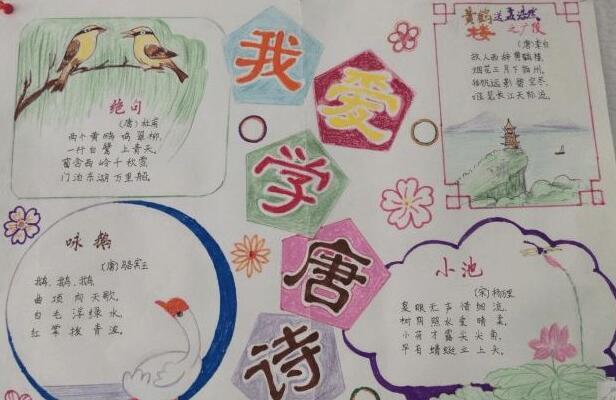 我
爱
学
唐
诗
绝句
(唐)杜甫
两个黄鹂鸣翠柳,
一行白鹭上青天,
窗含西岭千秋雪
门泊东湖万里船,
黄鹤送孟浩然
楼 之广陵
(唐)李白
故人西辞黄鹤楼,
烟花三月下扬州,
孤帆远影碧空尽,
唯见长江天际流,
咏鹅
(唐)骆宾王
鹅,鹅,鹅,
曲项向天歌,
白毛浮绿水,
红掌拨青波,
小池
(宋)杨万里
泉眼无声惜细流,
树阴照水爱晴柔,
小荷才露尖尖角,
早有蜻蜓立上头,